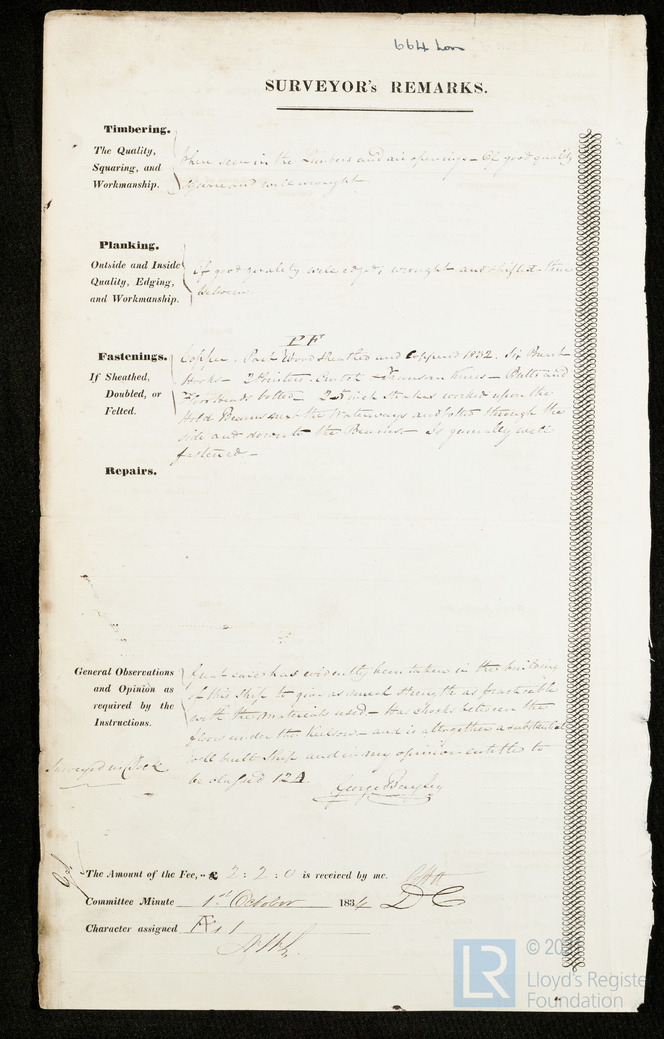 664 Lon
SURVEYOR's REMARKS.
Timbering.
The Quality,
Squaring, and
Workmanship.
When seen in the Limbers and air openings - Of good quality
square and well wrought
Planking.
Outside and Inside
Quality, Edging,
and Workmanship.
Of good quality well edged, wrought and shifted
between
PF
Fastenings.
If Sheathed,
Doubled, or
Felted.
Copper. Part Wood Sheathed and Coppered 1832. Six Breast
Hooks - 2 Pointers. Crutch - Transom Knees - Butts and
Floorheads bolted - inch Strakes worked upon the
Hold Beams the Waterways and bolted through the
side and down to the Beams - Is generally well
fastened -
Repairs.
General Observations
and Opinion as
required by the
Instructions.
Great care has evidently been taken in the building
of this Ship to give as much strength as practicable
with the materials used - Has Chocks between the
floors under the Keelson - and is altogether a substantial
well built Ship and in my opinion entitled to
be classed 12 A.
Surveyed in Dock
George Bayley
The Amount of the Fee, £ 2 : 2 : 0 is received by me.
Committee Minute 1st October 1834
Character assigned Æ 1
LR © 20
Lloyd's Register
Foundation